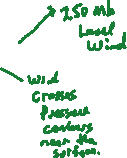 250 Mb
Level
Wind
Wind
Crosses
Pressure
contours
near the
surface.